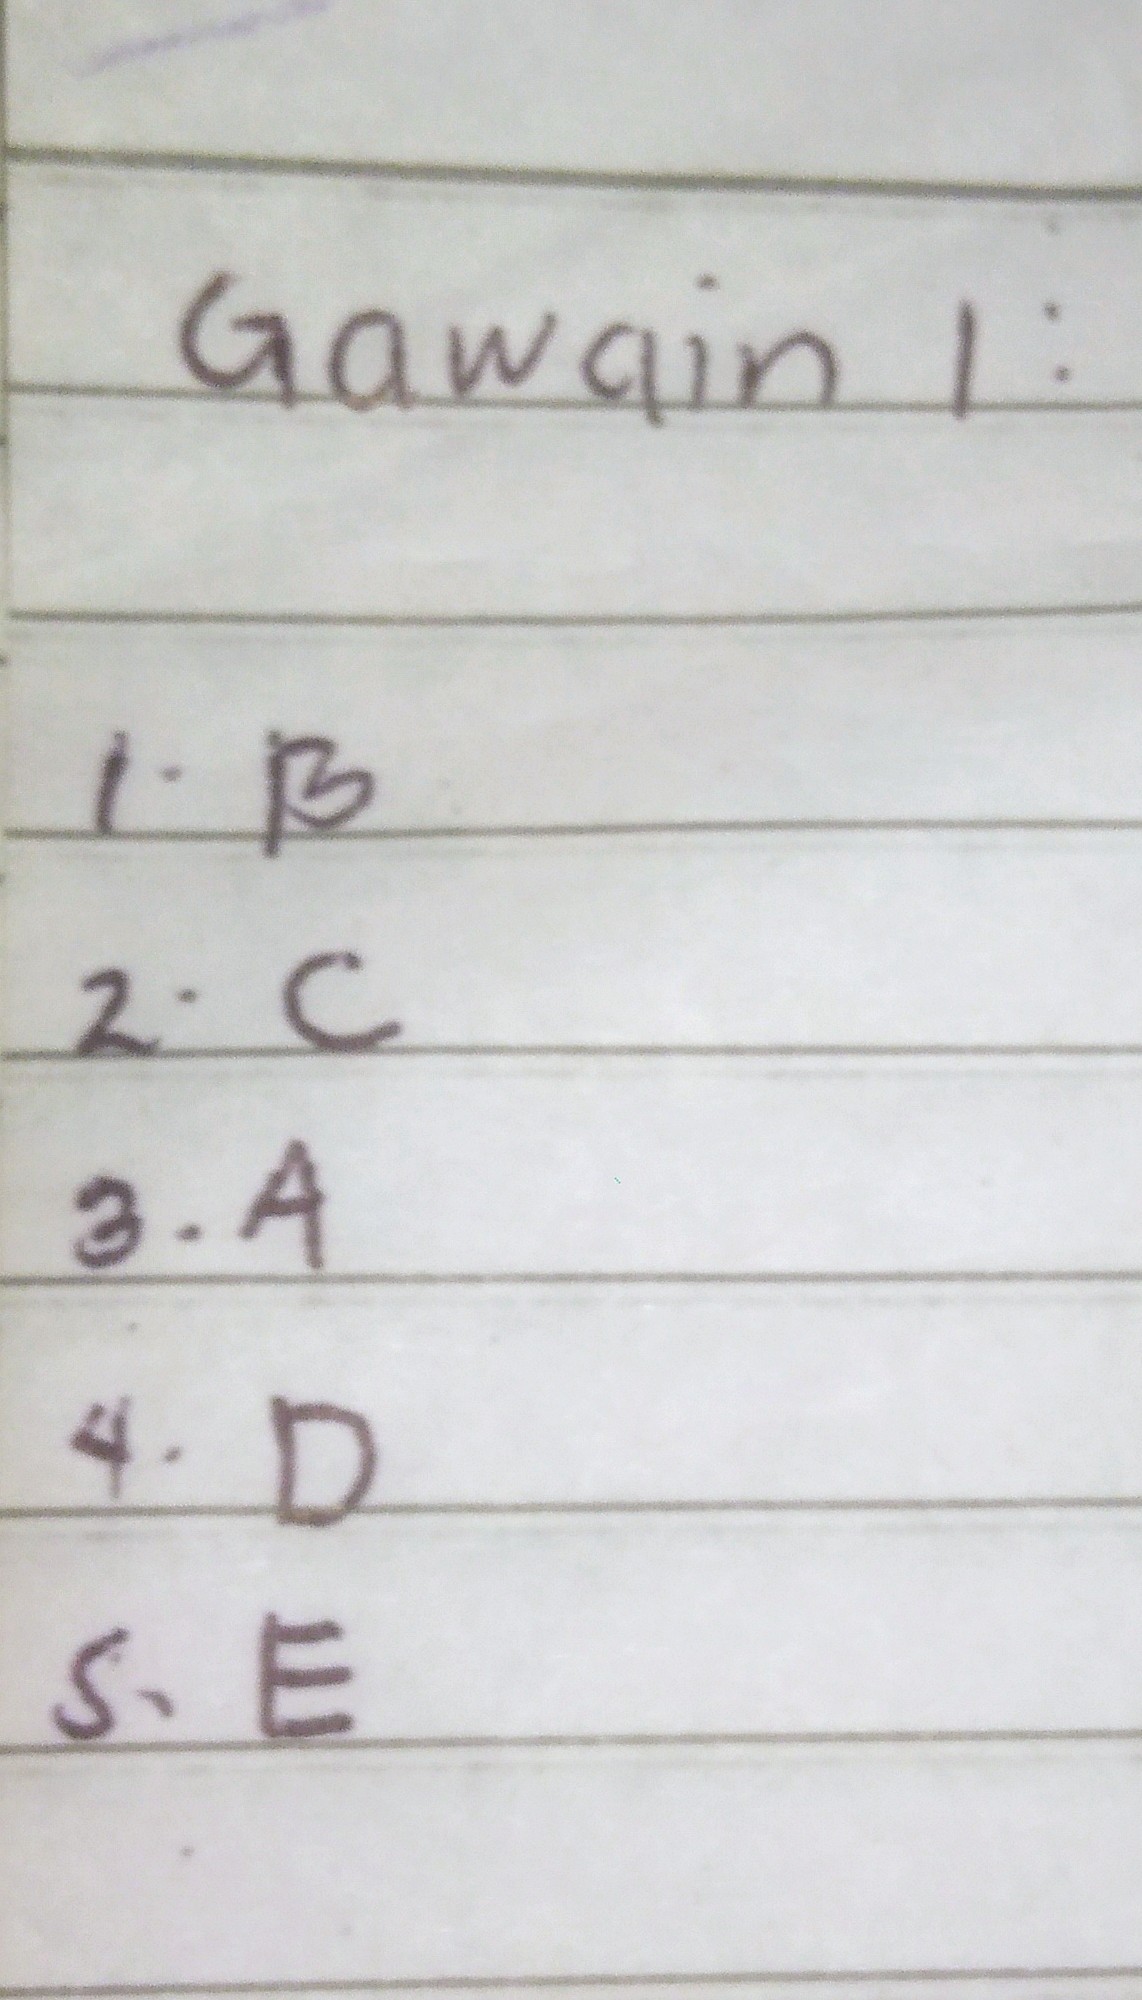 Gawain 1:
1. B
2. C
3. A
4. D
5. E